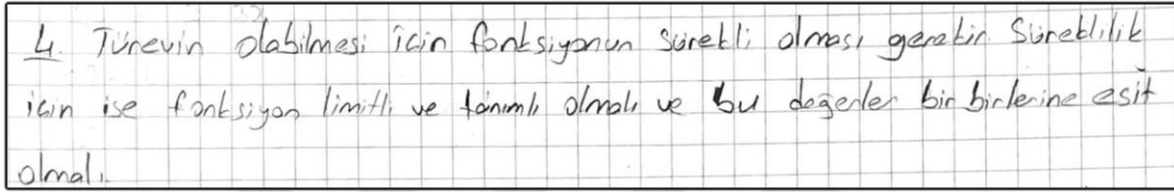 4. Türevin olabilmesi için fonksiyonun sürekli olması gerekir. Süreklilik
için ise fonksiyon limitli ve tanımlı olmalı ve bu değerler bir birlerine eşit
olmalı.